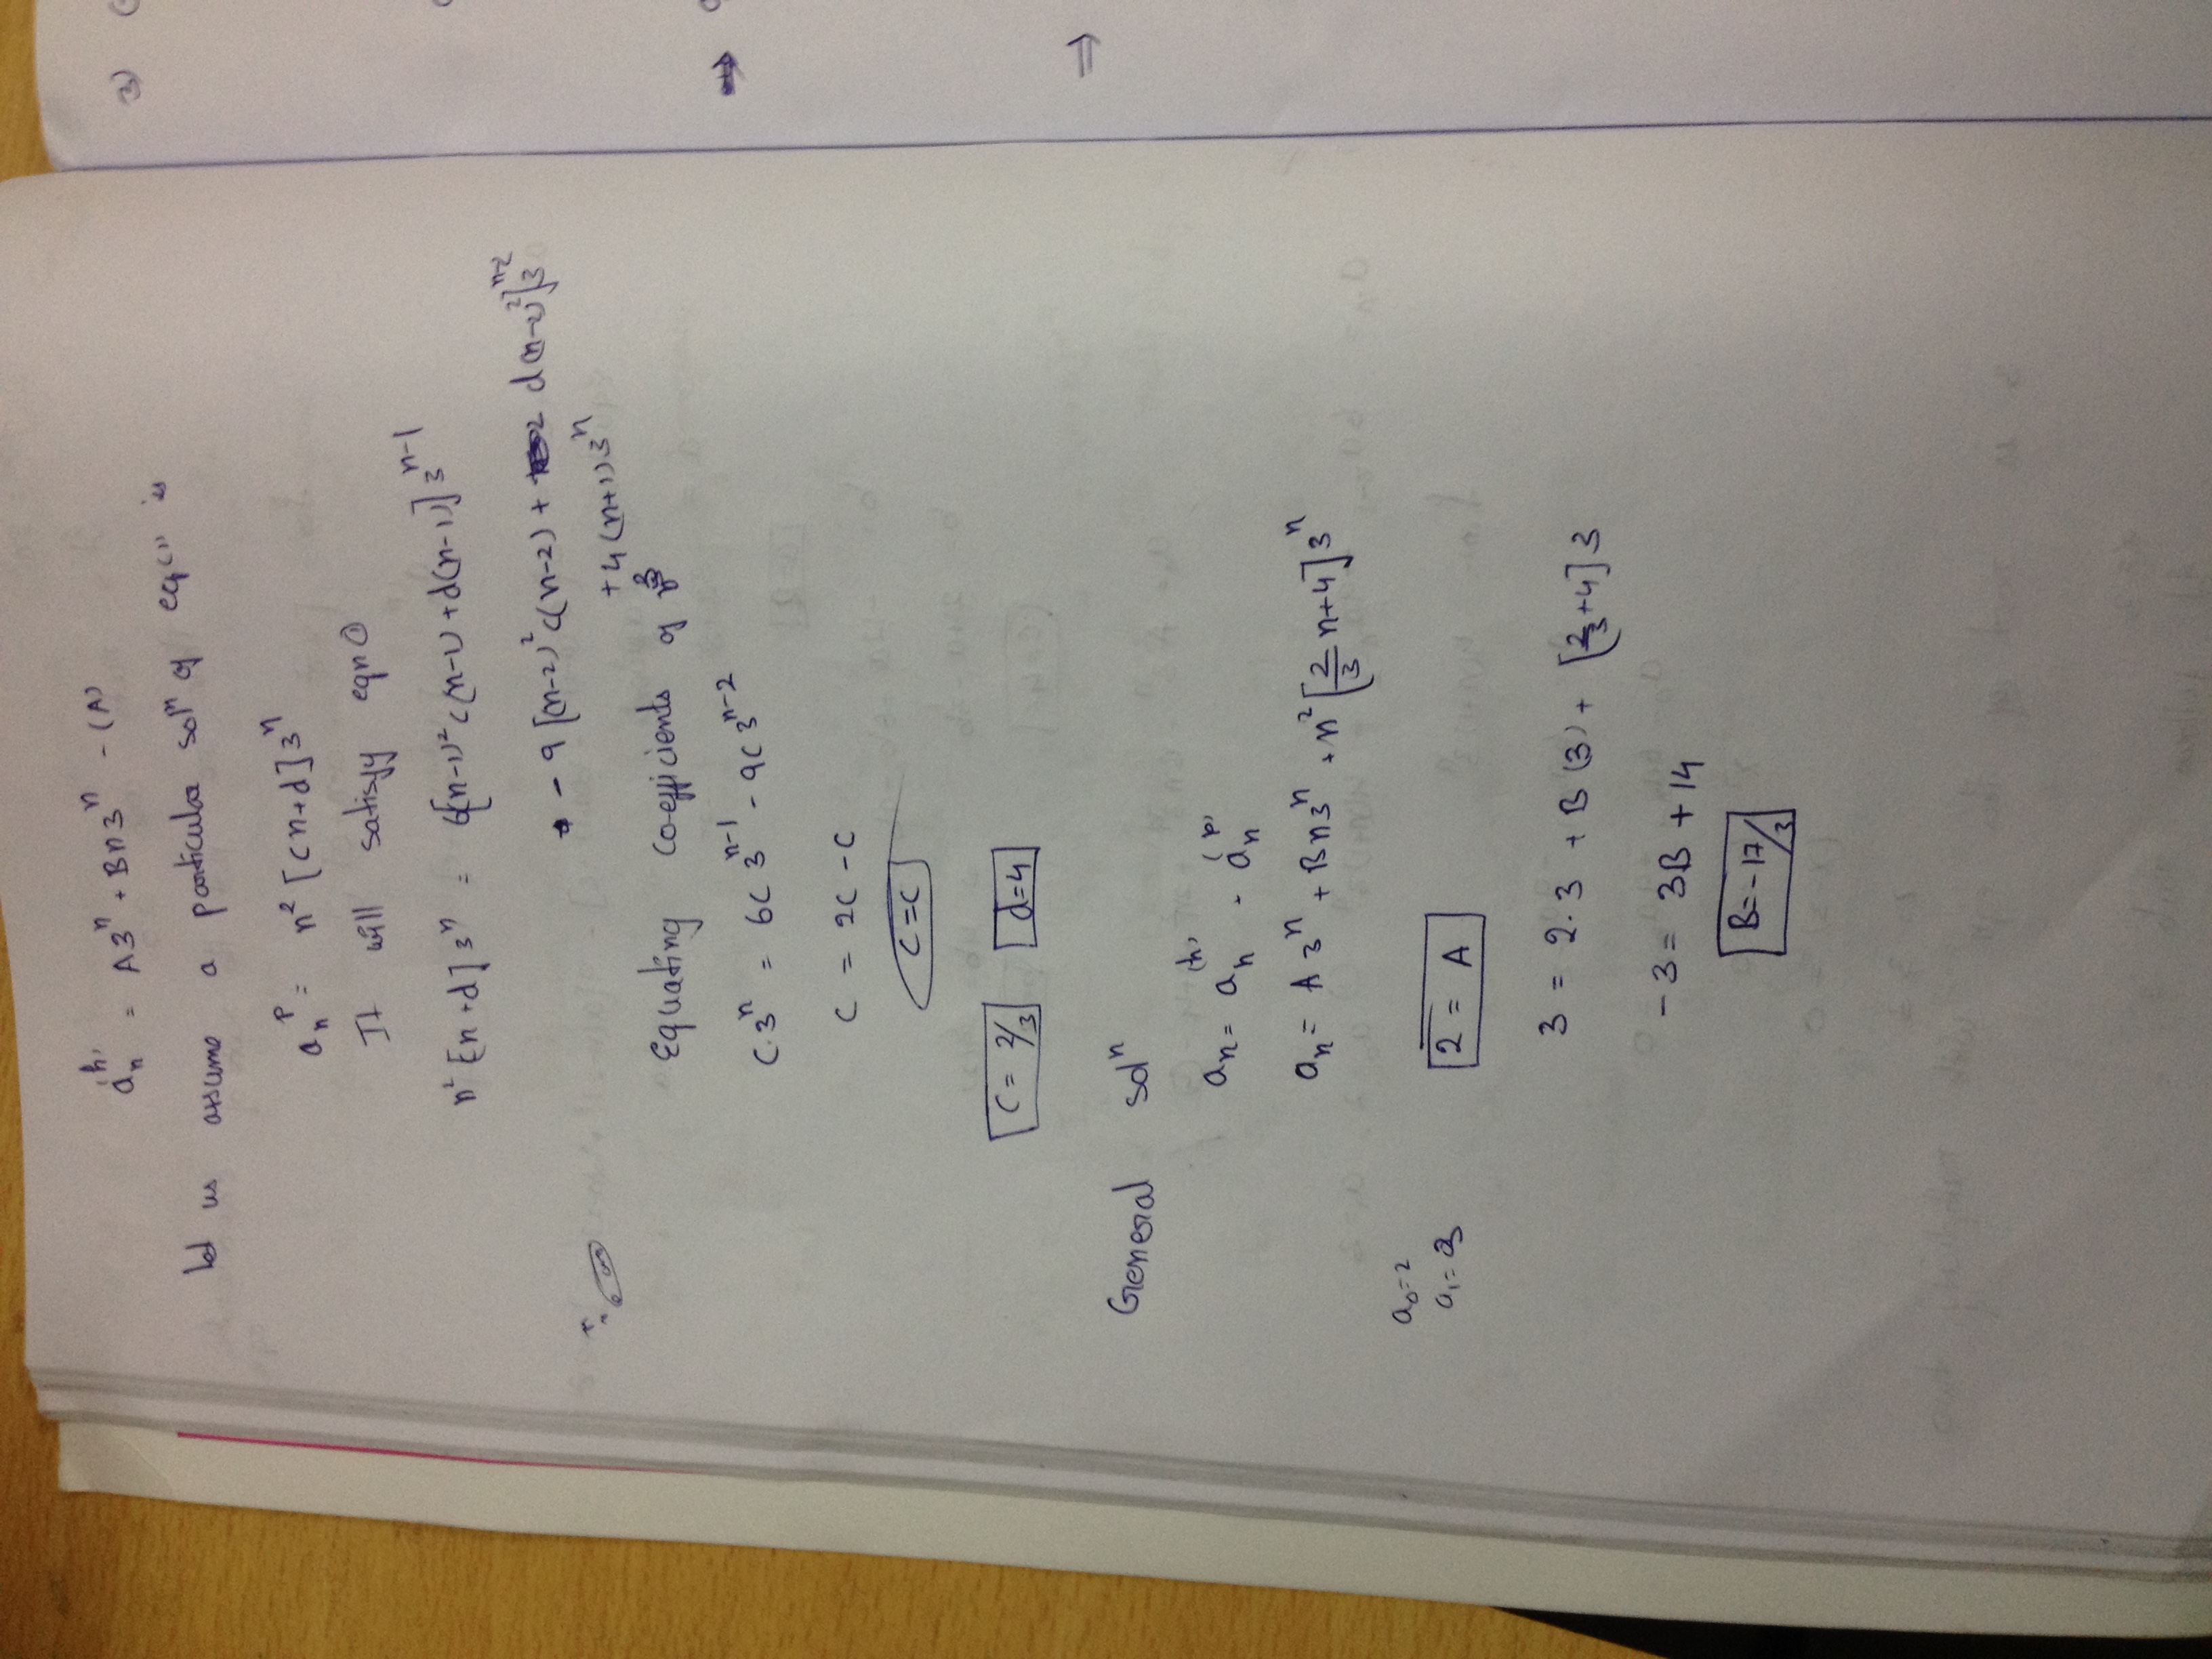 aₙ⁽ʰ⁾ = A3ⁿ + Bn3ⁿ - (A)
let us assume a particular solⁿ of eq(1) is
aₙᵖ = n² [cn+d] 3ⁿ
It will satisfy eqn ①
n² [n+d] 3ⁿ = 6[(n-1)² c(n-1) + d(n-1)] 3ⁿ⁻¹
- 9 [(n-2)² c(n-2) + d(n-2)²] 3ⁿ⁻²
+ 4(n+1) 3ⁿ
Equating coefficients of
c·3ⁿ = 6c 3ⁿ⁻¹ - 9c 3ⁿ⁻²
c = 2c - c
c = c
c = 2/3 d=4
General solⁿ
aₙ = aₙ⁽ʰ⁾ + aₙ⁽ᵖ⁾
aₙ = A 3ⁿ + Bn3ⁿ + n² [2/3 n+4] 3ⁿ
a₀=2
a₁=3
2 = A
3 = 2.3 + B(3) + [2/3+4] 3
-3 = 3B + 14
B = -17/3
3)
⇒